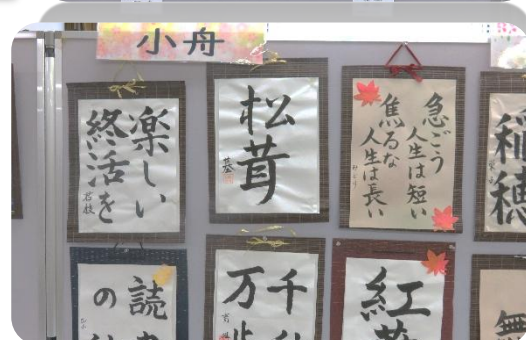 小舟
楽しい
終活を
若枝
松茸
急ごう
人生は短い
焦るな
人生は長い
稲穂
読
の
千
万
紅
無